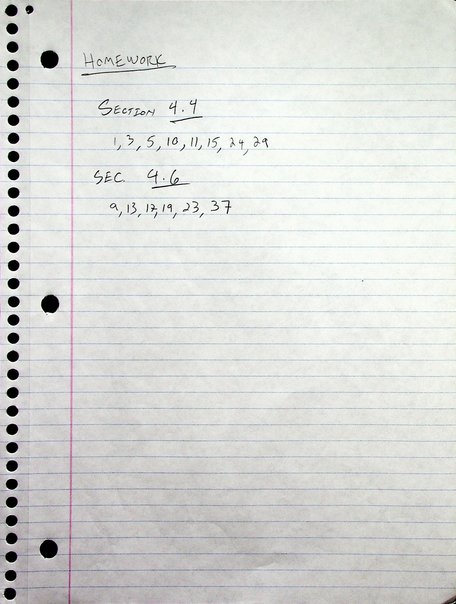 HOMEWORK
SECTION 4.4
1, 3, 5, 10, 11, 15, 24, 29
SEC. 4.6
9, 13, 17, 19, 23, 37